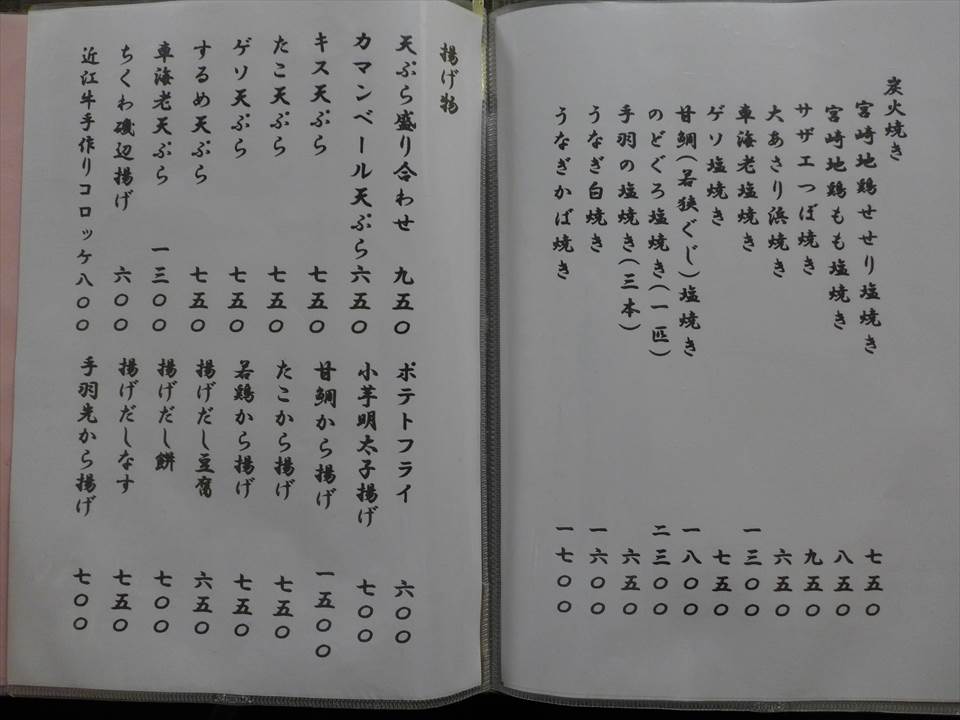 炭火焼き
宮崎地鶏せせり塩焼き 七五〇
宮崎地鶏もも塩焼き 八五〇
サザエつぼ焼き 九五〇
大あさり浜焼き 六五〇
車海老塩焼き 一三〇〇
ゲソ塩焼き 七五〇
甘鯛(若狭ぐじ)塩焼き 一八〇〇
のどぐろ塩焼き(一匹) 二三〇〇
手羽の塩焼き(三本) 六五〇
うなぎ白焼き 一六〇〇
うなぎかば焼き 一七〇〇
揚げ物
天ぷら盛り合わせ 九五〇
カマンベール天ぷら 六五〇
キス天ぷら 七五〇
たこ天ぷら 七五〇
ゲソ天ぷら 七五〇
するめ天ぷら 七五〇
車海老天ぷら 一三〇〇
ちくわ磯辺揚げ 六〇〇
近江牛手作りコロッケ 八〇〇
ポテトフライ 六〇〇
小芋明太子揚げ 七〇〇
甘鯛から揚げ 一五〇〇
たこから揚げ 七五〇
若鶏から揚げ 七五〇
揚げだし豆腐 六五〇
揚げだし餅 七〇〇
揚げだしなす 七五〇
手羽先から揚げ 七〇〇